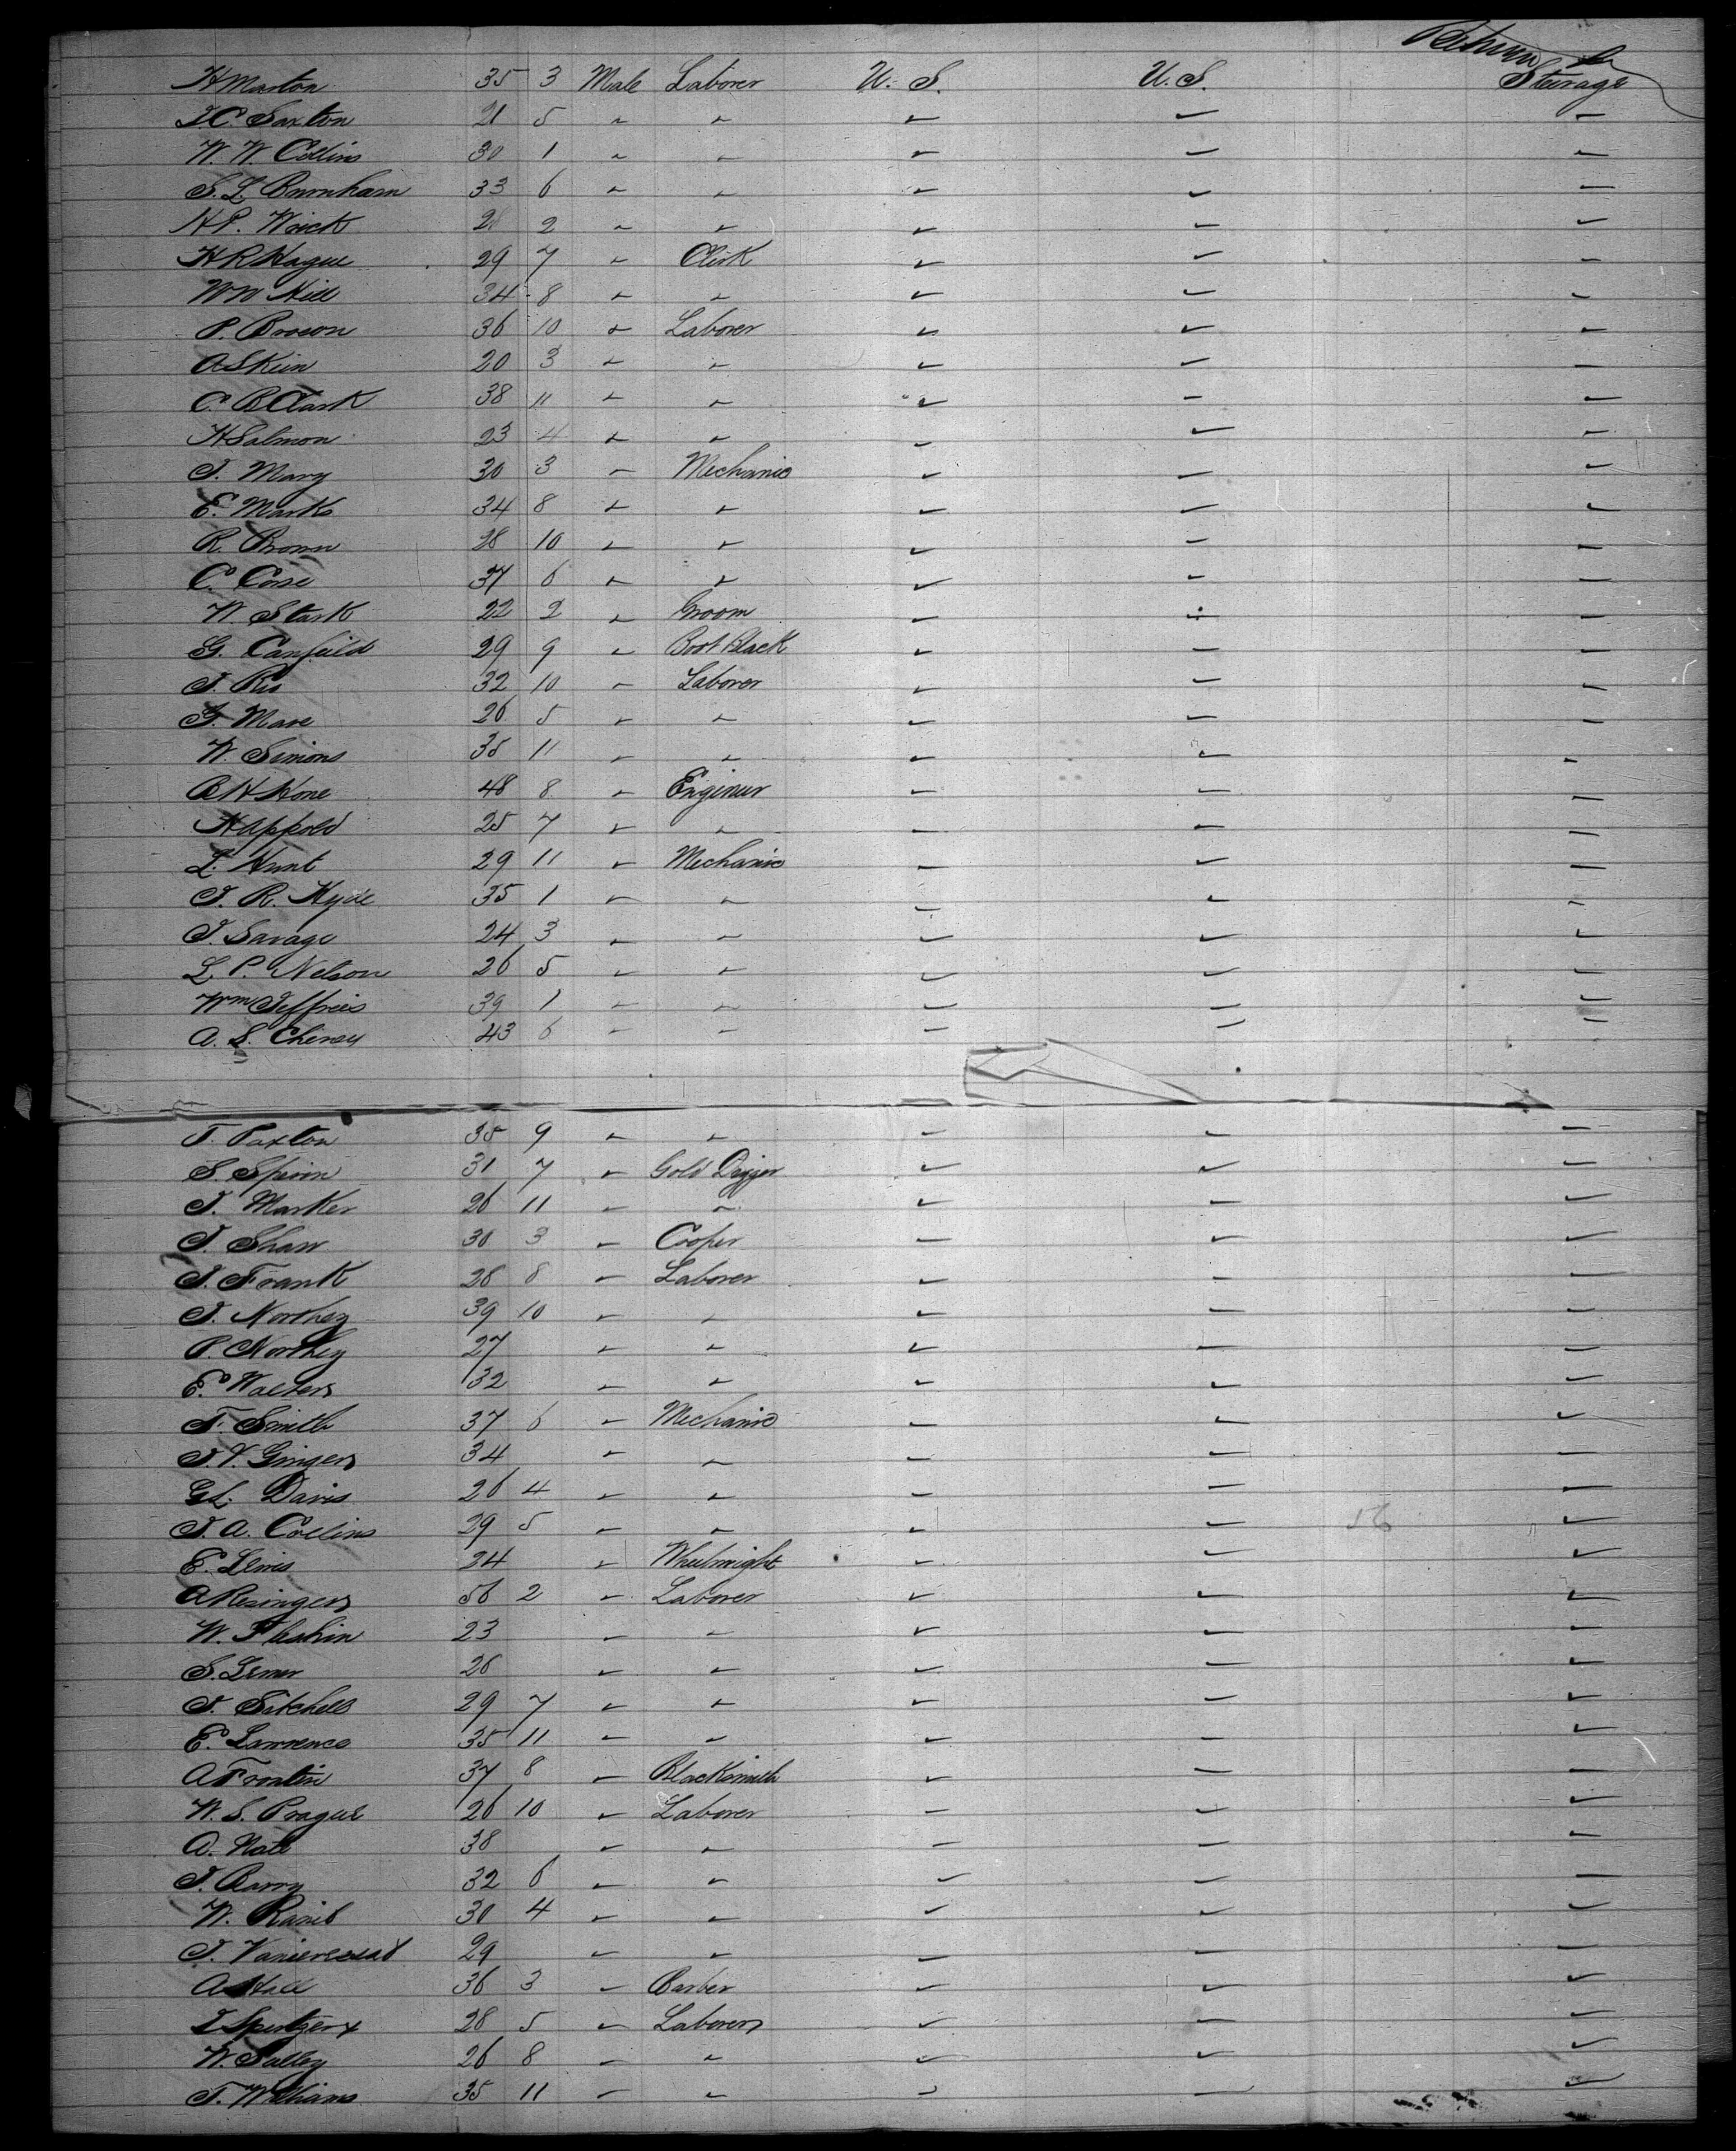 Return
H Marston 35 3 Male Laborer U. S. U. S. Steerage
J. C. Saxton 21 5 " " " " "
W. W. Collins 30 1 " " " " "
S. L. Burnham 33 6 " " " " "
H P. Wrick 28 2 " " " " "
H R Hague 29 7 " Clerk " " "
Wm Hill 34 8 " " " " "
P. Broson 36 10 " Laborer " " "
A Skein 20 3 " " " " "
C. B Clark 38 11 " " " " "
H Salmon 23 4 " " " " "
J. Mary 30 3 " Mechanic " " "
E. Marks 34 8 " " " " "
R. Brown 28 10 " " " " "
C. Corse 37 6 " " " " "
W Stark 22 2 " Groom " " "
G. Canfield 29 9 " Boot Black " " "
J. Ris 32 10 " Laborer " " "
F. Mare 26 5 " " " " "
W. Simons 35 11 " " " " "
B H Hone 48 8 " Engineer " " "
H Appold 25 7 " " " " "
L. Hunt 29 11 " Mechanic " " "
J. R. Hyde 35 1 " " " " "
J. Savage 24 3 " " " " "
L. P. Nelson 26 5 " " " " "
Wm Jeffries 39 1 " " " " "
A. S. Cheney 43 6 " " " " "
T. Paxton 35 9 " " " " "
S. Spinn 31 7 " Gold Digger " " "
J. Marker 26 11 " " " " "
J. Shaw 30 3 " Cooper " " "
J. Frank 28 8 " Laborer " " "
J. Northey 39 10 " " " " "
P. Northey 27 " " " " "
E. Walters 32 " " " " "
F. Smith 37 6 " Mechanic " " "
J. V. Gingers 34 " " " " "
G L. Davis 26 4 " " " " "
J. A. Collins 29 5 " " " " "
E. Lewis 24 " Wheelwright " " "
A Resingers 56 2 " Laborer " " "
W. Fleshin 23 " " " " "
S. Lemer 26 " " " " "
J. Sitchell 29 7 " " " " "
E. Lawrence 35 11 " " " " "
A Frontin 37 8 " Blacksmith " " "
W. S. Prague 26 10 " Laborer " " "
A. Nall 38 " " " " "
J. Barry 32 6 " " " " "
W. 30 4 " " " " "
J. 29 " " " " "
A Hall 36 3 " Barber " " "
28 5 " Laborer " " "
W. Salley 26 8 " " " " "
T. Williams 35 11 " " " " "